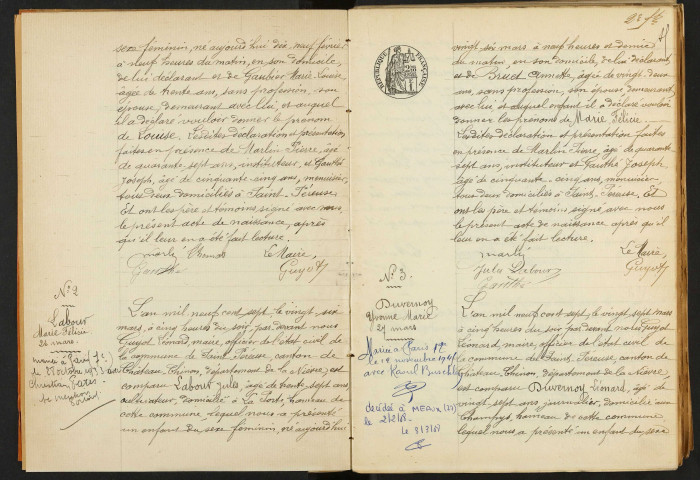 sexe féminin, né aujourd'hui dix neuf février
à neuf heures du matin, en son domicile,
de lui déclarant et de Gaubier Marie Louise,
âgée de trente ans, sans profession, son
épouse, demeurant avec lui, et auquel
il a déclaré vouloir donner le prénom
de Louise. Lesdites déclaration et présentation
faites en présence de Martin Pierre, âgé
de quarante sept ans, instituteur, et Gauthé
Joseph, âgé de cinquante cinq ans, menuisier,
tous deux domiciliés à Saint-Péreuse.
Et ont les père et témoins signé avec nous
le présent acte de naissance, après
qu'il leur en a été fait lecture.
Le Maire,
Gauthé
Guyot
N° 2
Labour
Marie Félicie
26 mars
L'an mil neuf cent sept le vingt six
mars, à cinq heures du soir par devant nous
Guyot Léonard, maire, officier de l'état civil de
la commune de Saint-Péreuse, canton de
Château-Chinon, département de la Nièvre, est
comparu Labour Jules, âgé de trente sept ans
cultivateur, domicilié à La Porte, hameau de
cette commune, lequel nous a présenté
un enfant du sexe féminin, né aujourd'hui
RÉPUBLIQUE FRANÇAISE
vingt six mars à neuf heures et demie
du matin, en son domicile, de lui déclarant
et de Bruet Annette, âgée de vingt deux
ans, sans profession, son épouse, demeurant
avec lui et auquel enfant il a déclaré vouloir
donner les prénoms de Marie Félicie.
Lesdites déclaration et présentation faites
en présence de Martin Pierre, âgé de quarante
sept ans, instituteur et Gauthé Joseph
âgé de cinquante cinq ans, menuisier
tous deux domiciliés à Saint-Péreuse. Et
ont les père et témoins signé avec nous
le présent acte de naissance après qu'il
leur en a été fait lecture.
Le Maire,
Jules
Guyot
Gauthé
N° 3.
Duvernoy
Yvonne Marie
27 mars
Mariée à Paris
le 14 novembre
avec Raoul
décédé à
le 2/2/68
le 8/7/68
L'an mil neuf cent sept, le vingt sept mars
à cinq heures du soir par devant nous Guyot
Léonard, maire, officier de l'état civil de
la commune de Saint-Péreuse, canton de
Château-Chinon, département de la Nièvre
est comparu Duvernoy Léonard, âgé de
vingt sept ans, journalier, domicilié aux
Champs, hameau de cette commune
lequel nous a présenté un enfant du sexe